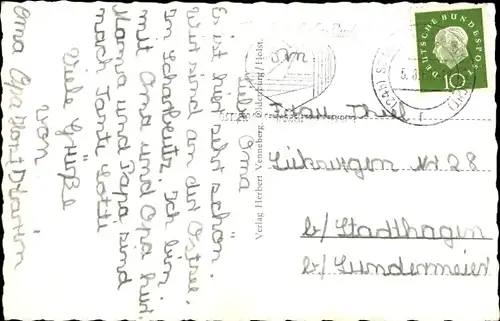 Liebe Oma
Es ist hier sehr schön.
Wir sind an der Ostsee.
In Scharbeutz. Ich bin
mit Oma und Opa hier.
Mama und Papa sind
nach Tante Lotte
Viele Grüße
von
Oma Opa
Verlag Herbert Venneberg Oldenburg/Holst.
An
Frau Thiel
Nr 28
b/ Stadthagen
b/ Sundermeier
DEUTSCHE BUNDESPOST
10